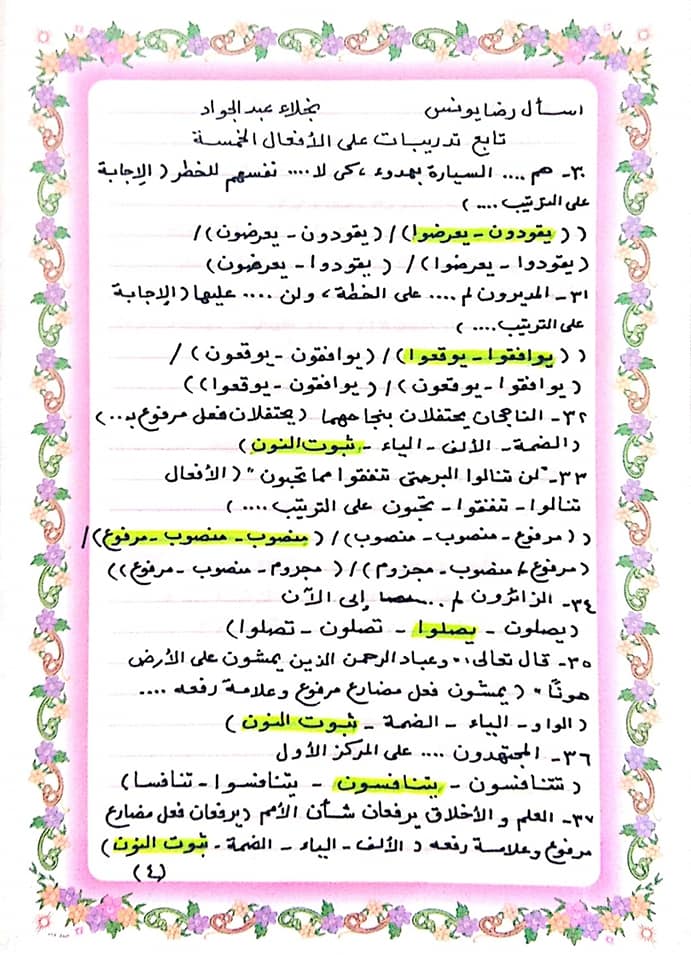 اسأل رضا يونس نجلاء عبد الجواد
تابع تدريبات على الأفعال الخمسة
٣٠- هم .... السيارة بهدوء ، كى لا .... نفسهم للخطر ( الإجابة
على الترتيب .... )
( ( يقودون - يعرضوا ) / ( يقودون - يعرضون ) /
( يقودوا - يعرضوا ) / ( يقودوا - يعرضون )
٣١- المديرون لم .... على الخطة ، ولن .... عليها ( الإجابة
على الترتيب .... )
( ( يوافقوا - يوقعوا ) / ( يوافقون - يوقعون ) /
( يوافقوا - يوقعون ) / ( يوافقون - يوقعوا ) )
٣٢- الناجحان يحتفلان بنجاحهما ( يحتفلان فعل مرفوع بـ ... )
( الضمة - الألف - الياء - ثبوت النون )
٣٣- "لن تنالوا البر حتى تنفقوا مما تحبون" ( الأفعال
تنالوا - تنفقوا - تحبون على الترتيب .... )
( ( مرفوع - منصوب - منصوب ) / ( منصوب - منصوب - مرفوع ) /
( مرفوع / منصوب - مجزوم ) / ( مجزوم - منصوب - مرفوع ) )
٣٤- الزائرون لم .... إلى الآن
( يصلون - يصلوا - تصلون - تصلوا )
٣٥- قال تعالى : " وعباد الرحمن الذين يمشون على الأرض
هونًا " ( يمشون فعل مضارع مرفوع وعلامة رفعه ....
( الواو - الياء - الضمة - ثبوت النون )
٣٦- المجتهدون .... على المركز الأول
( تتنافسون - يتنافسون - يتنافسوا - تنافسا )
٣٧- العلم و الأخلاق يرفعان شأن الأمم ( يرفعان فعل مضارع
مرفوع وعلامة رفعه ( الألف - الياء - الضمة - ثبوت النون )
(٤)